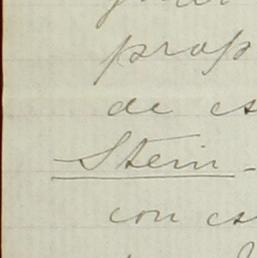 prop
de es
Stein-
con es